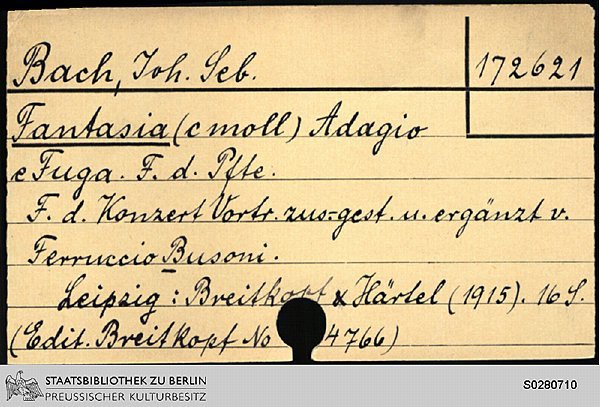 Bach, Joh. Seb.
172621
Fantasia (c moll) Adagio
e Fuga. F. d. Pfte.
F. d. Konzert Vortr. zus-gest. u. ergänzt v.
Ferruccio Busoni.
Leipzig: Breitkopf & Härtel (1915). 16 S.
(Edit. Breitkopf No 4766)
STAATSBIBLIOTHEK ZU BERLIN
PREUSSISCHER KULTURBESITZ
S0280710